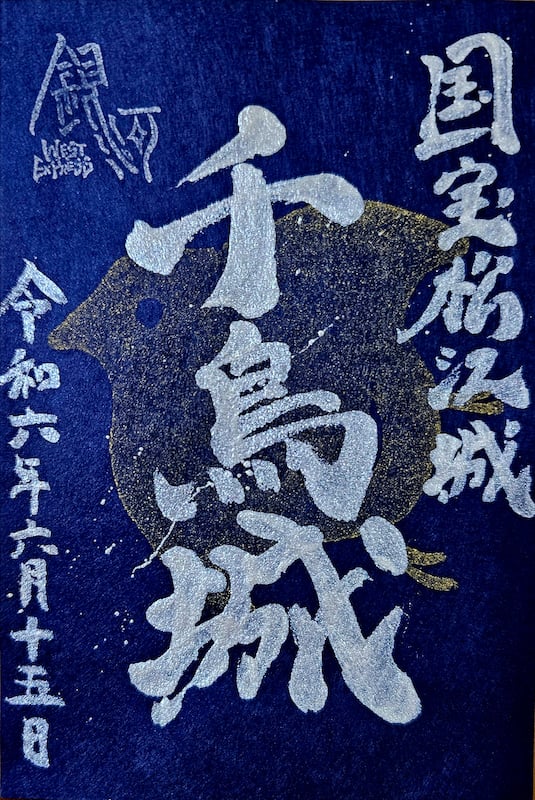 国宝松江城
千鳥城
令和六年六月十五日
銀河
WEST
EXPRESS